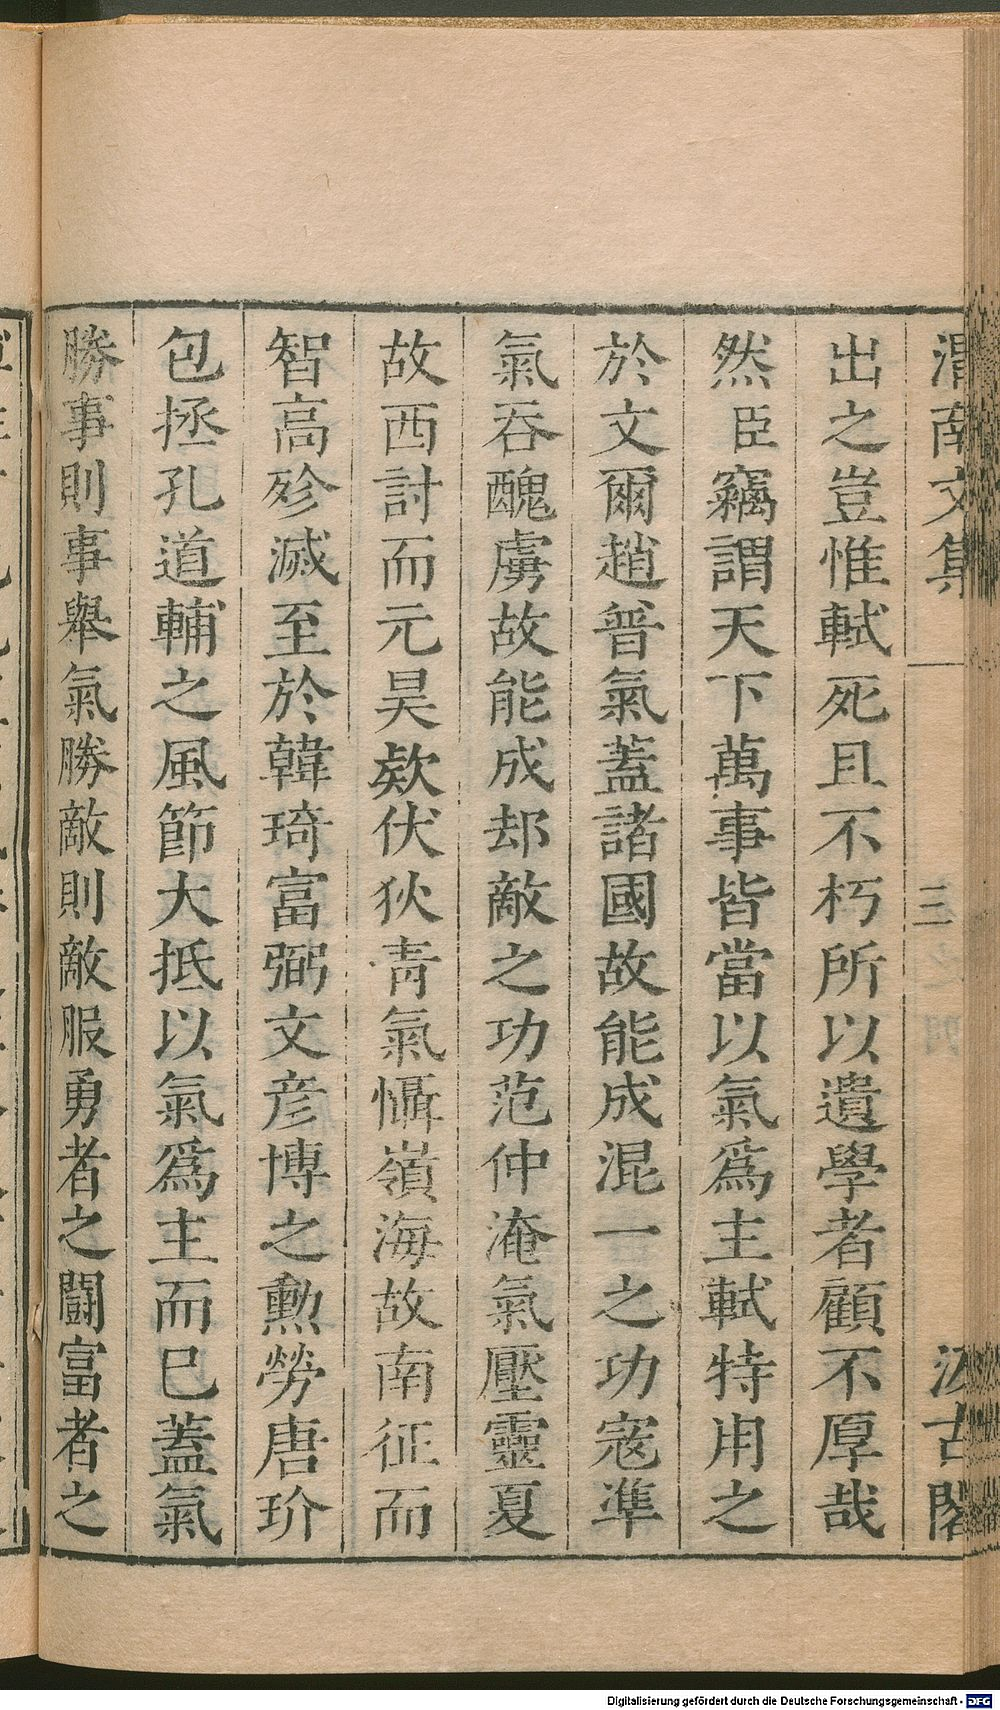 渭南文集 三 汲古閣
出之豈惟軾死且不朽所以遺學者顧不厚哉
然臣竊謂天下萬事皆當以氣爲主軾特用之
於文爾趙普氣蓋諸國故能成混一之功寇準
氣吞醜虜故能成却敵之功范仲淹氣壓靈夏
故西討而元昊欵伏狄青氣懾嶺海故南征而
智高殄滅至於韓琦富弼文彥博之勲勞唐玠
包拯孔道輔之風節大抵以氣爲主而巳蓋氣
勝事則事舉氣勝敵則敵服勇者之鬬富者之
Digitalisierung gefördert durch die Deutsche Forschungsgemeinschaft - DFG